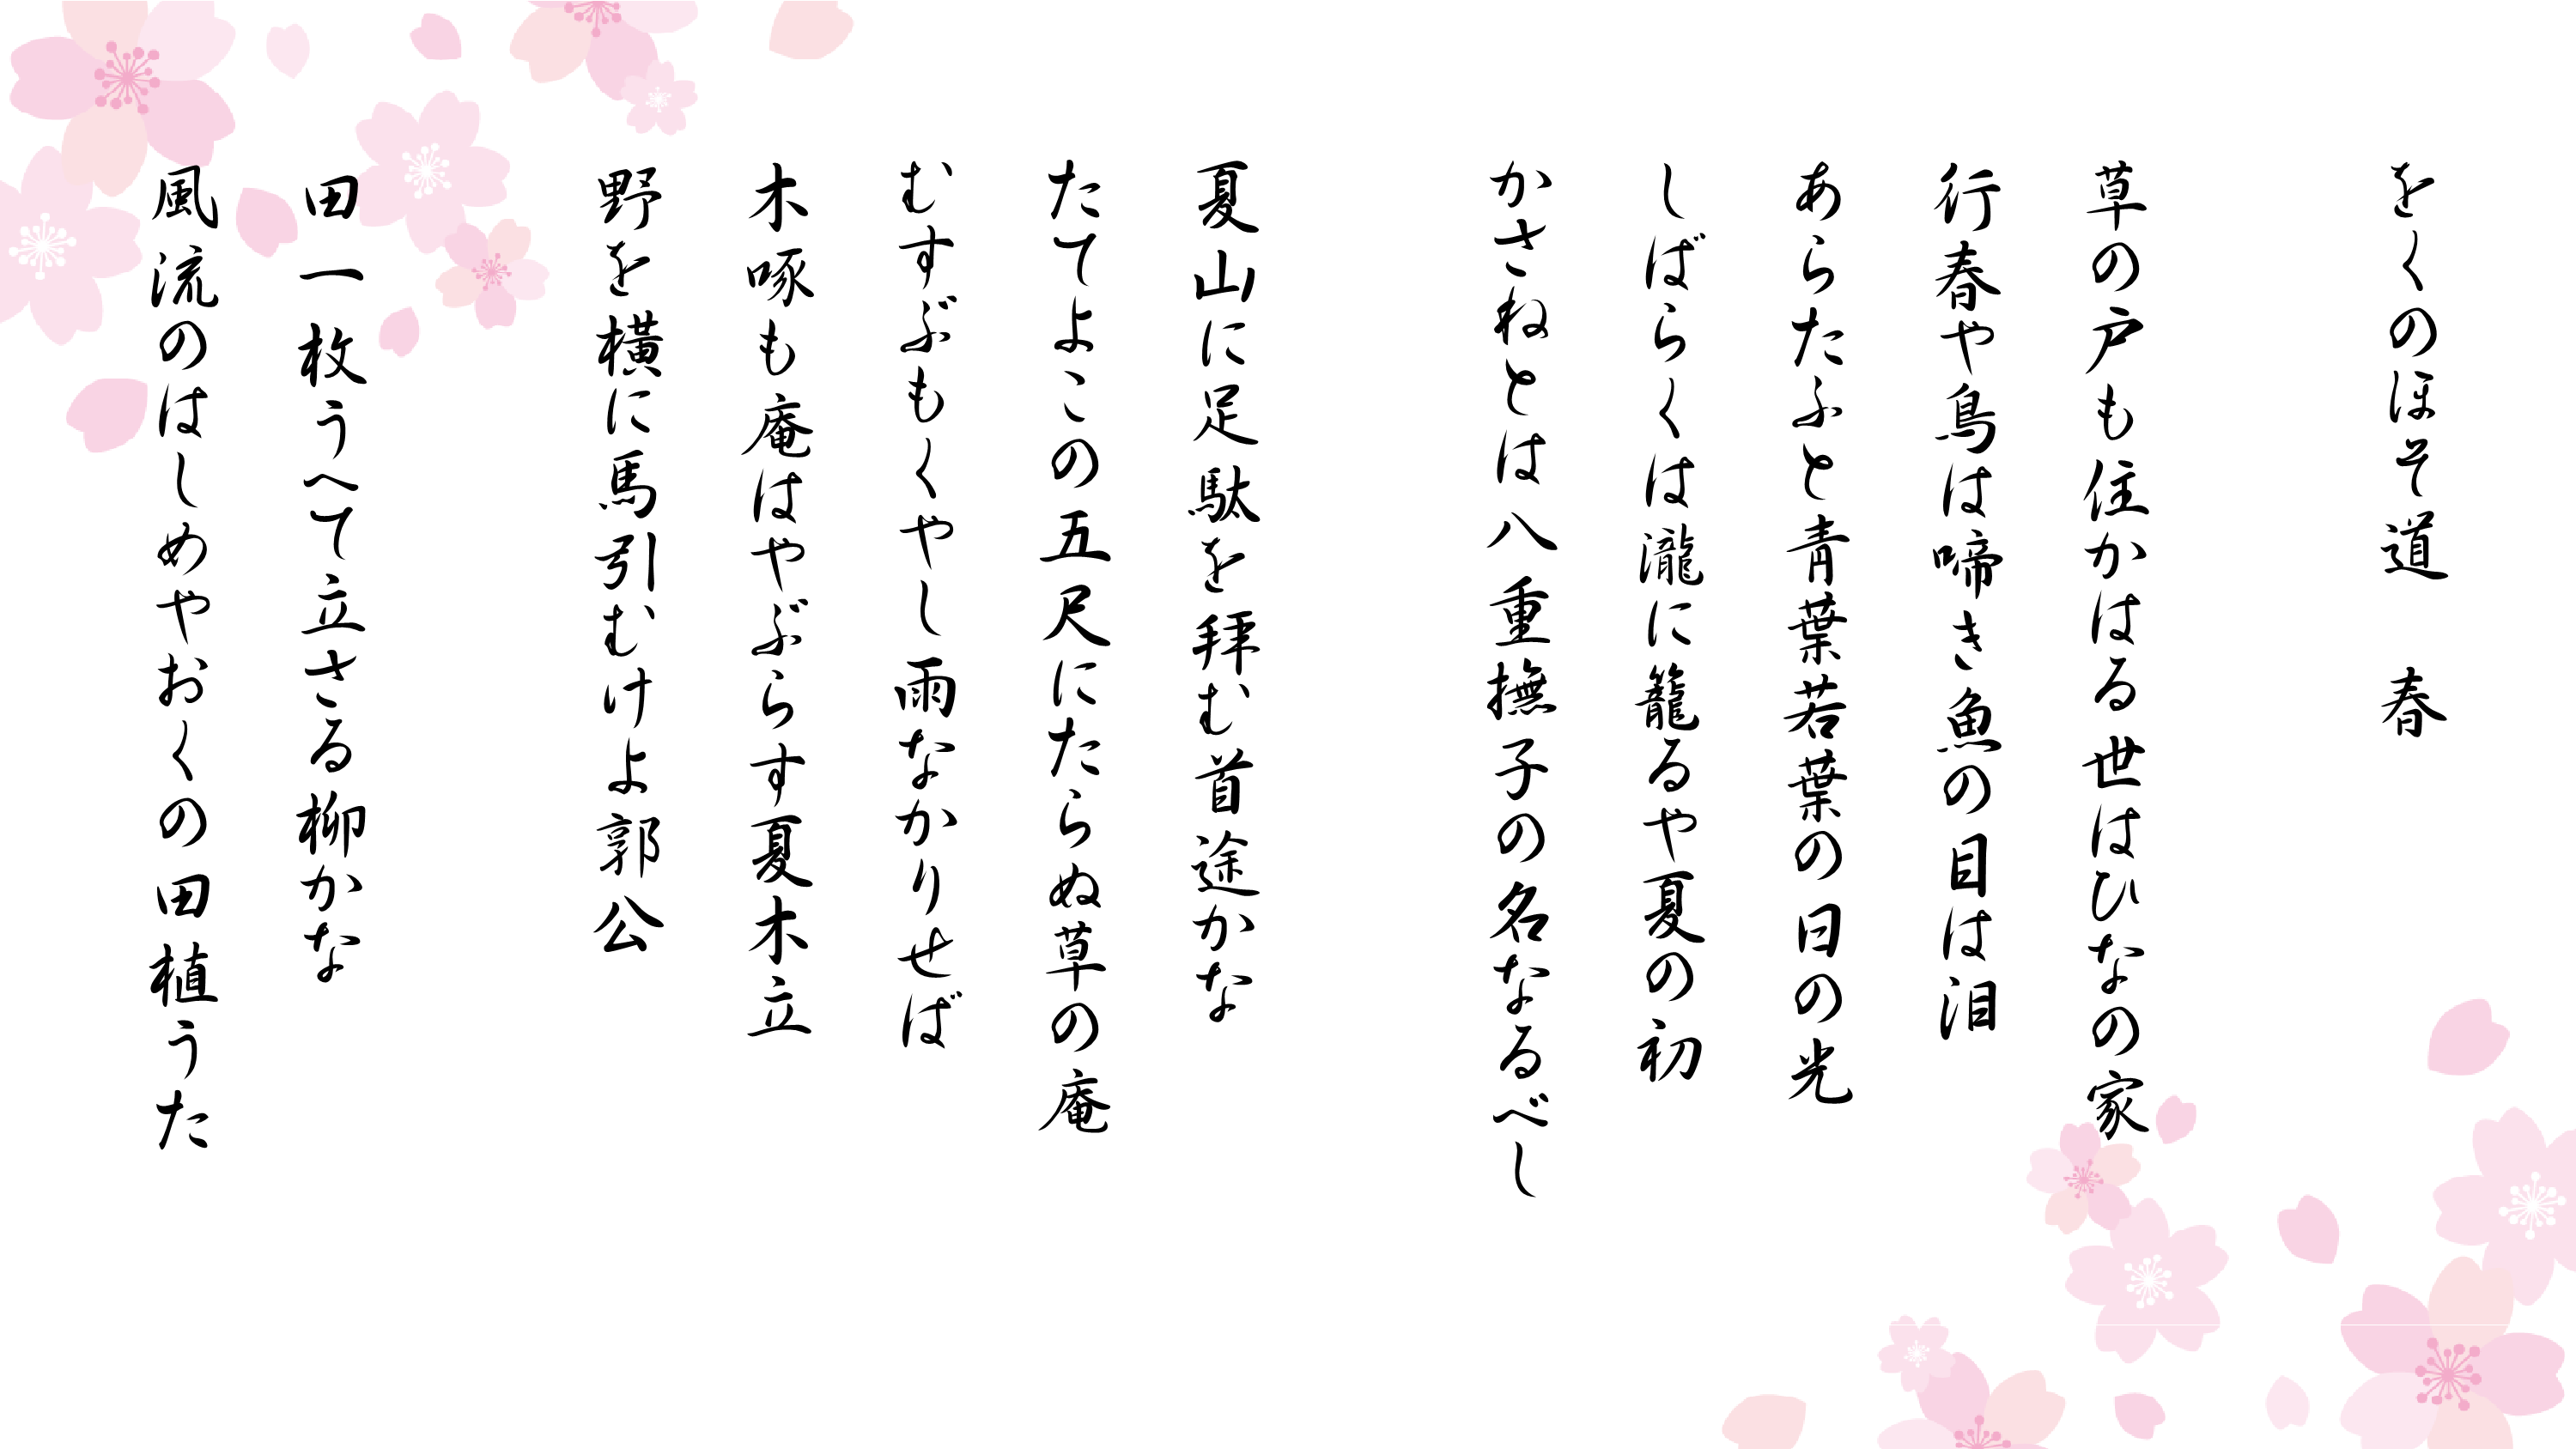 をくのほそ道　春
草の戸も住かはる世はひなの家
行春や鳥は啼き魚の目は泪
あらたふと青葉若葉の日の光
しばらくは瀧に籠るや夏の初
かさねとは八重撫子の名なるべし
夏山に足駄を拝む首途かな
たてよこの五尺にたらぬ草の庵
むすぶもくやし雨なかりせば
木啄も庵はやぶらす夏木立
野を横に馬引むけよ郭公
田一枚うへて立さる柳かな
風流のはしめやおくの田植うた